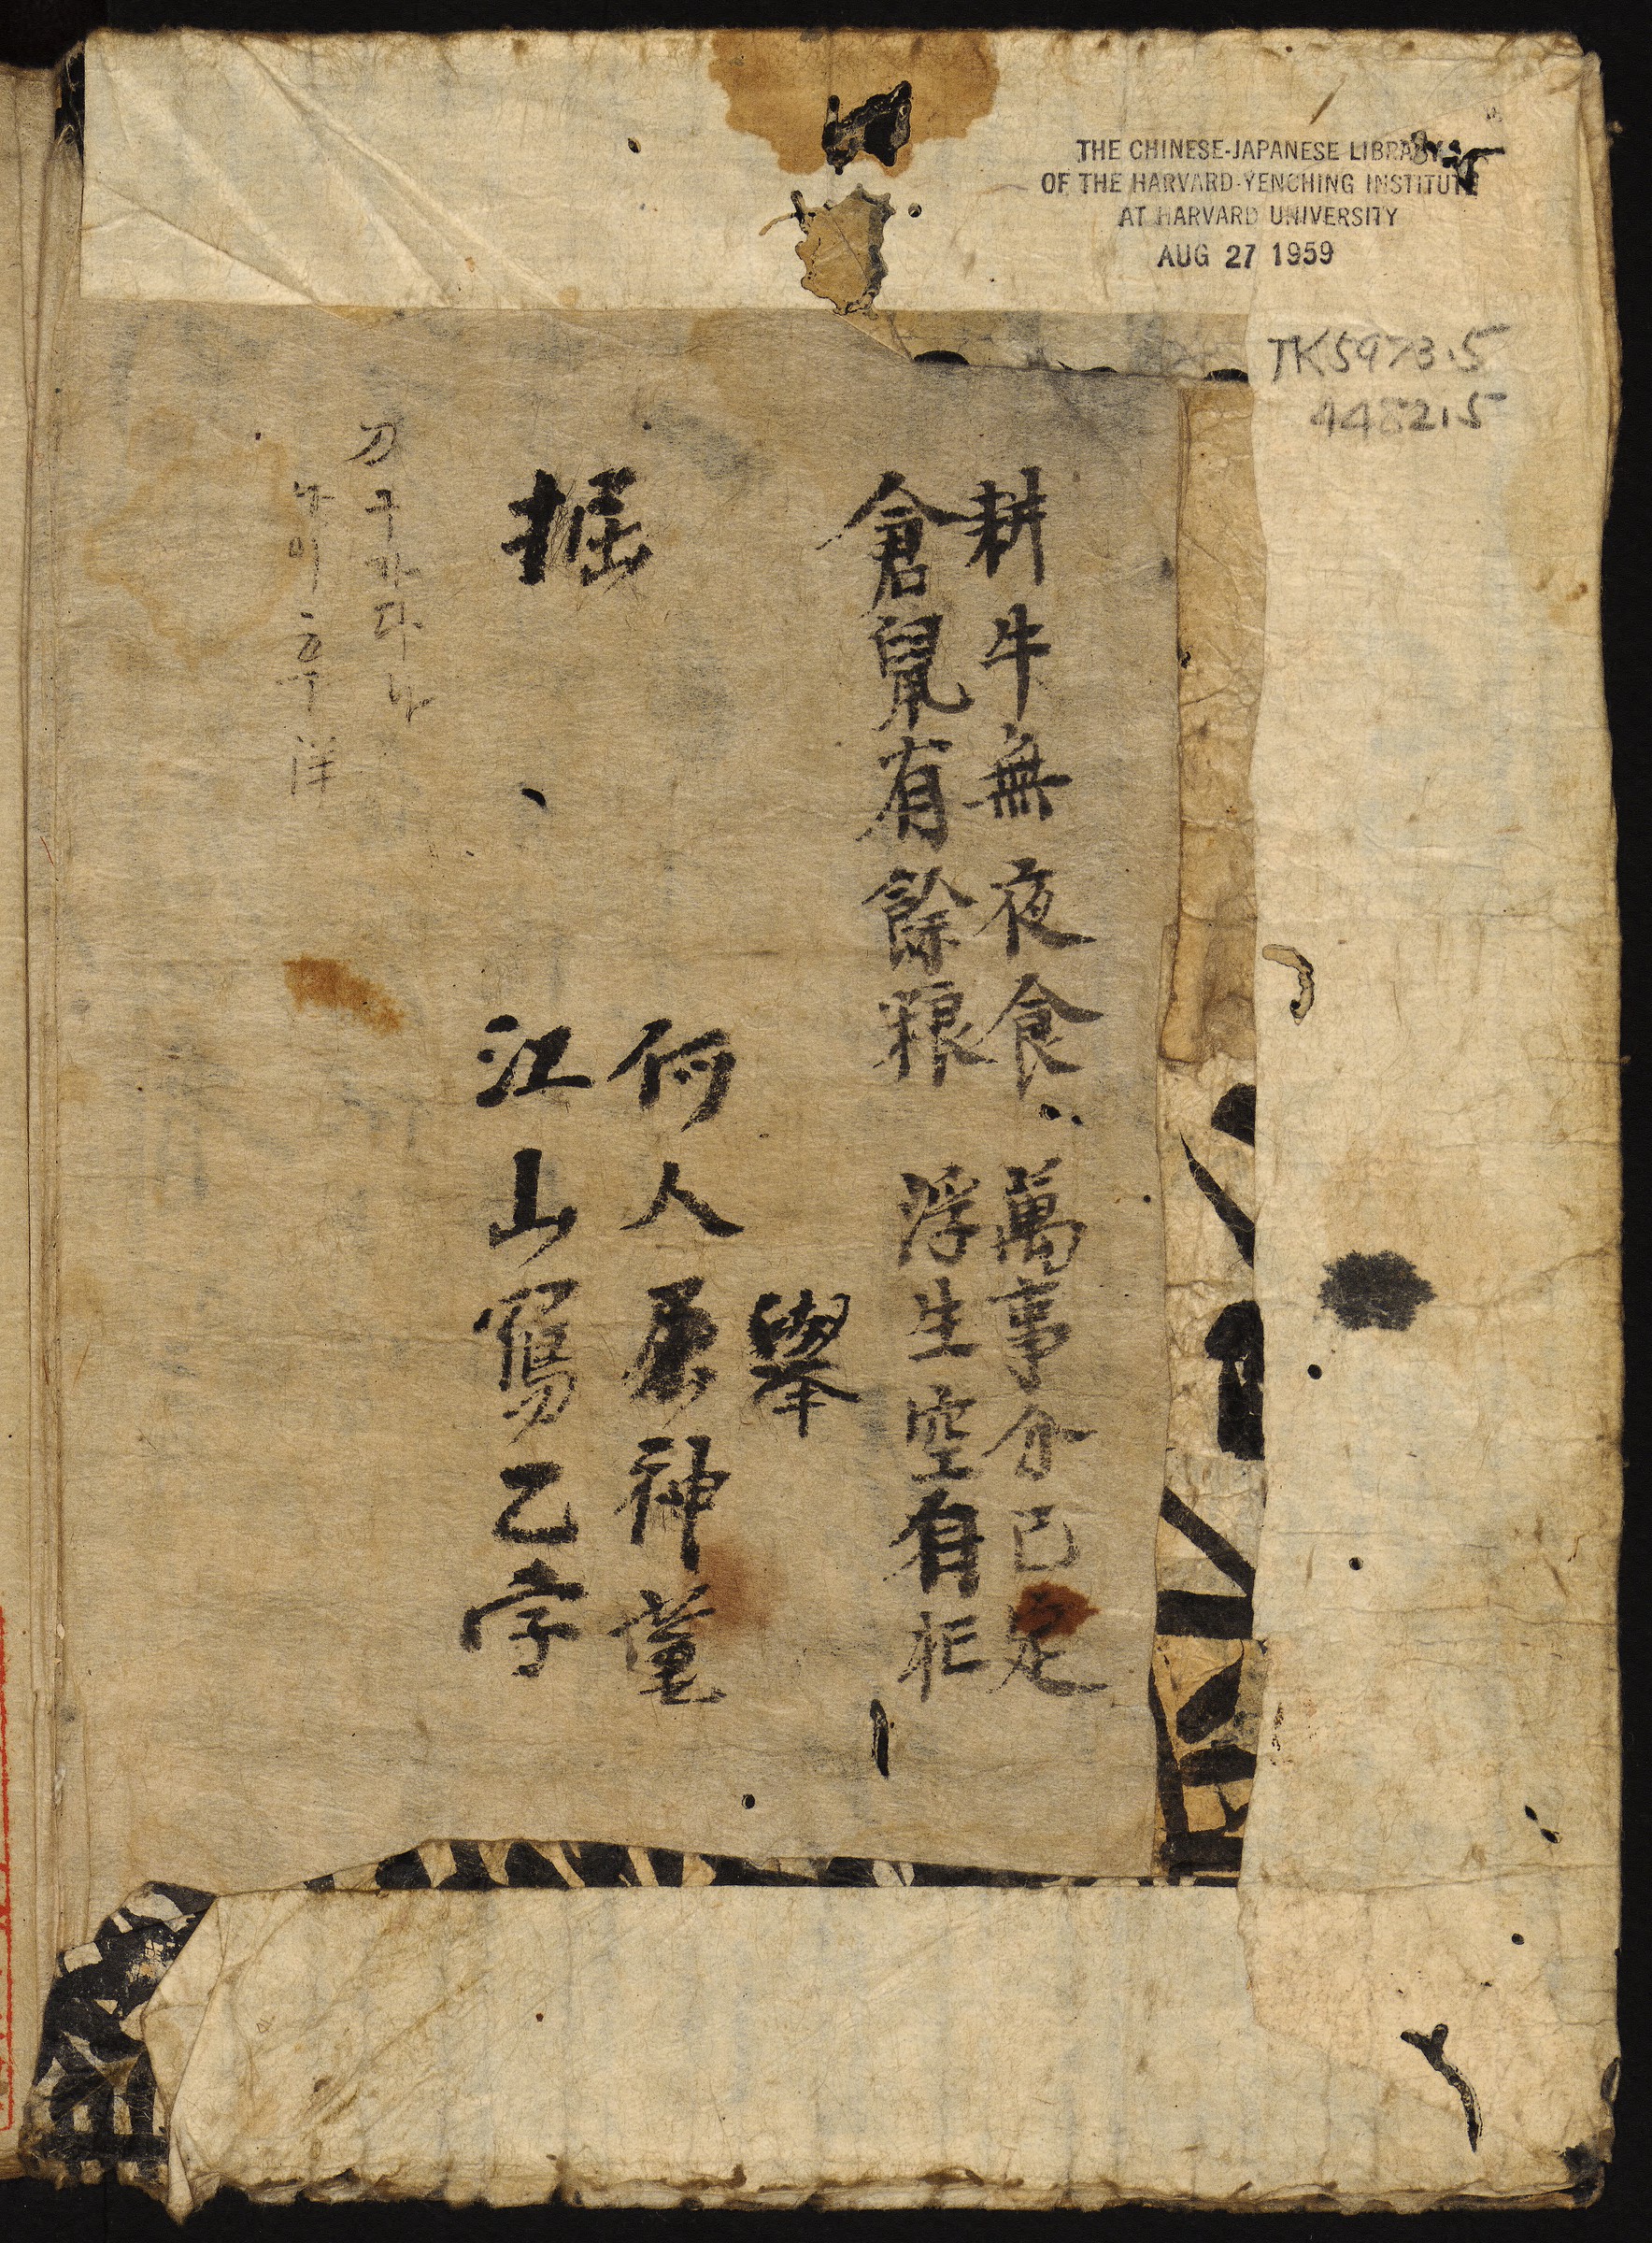 THE CHINESE-JAPANESE LIBRARY
OF THE HARVARD-YENCHING INSTITUTE
AT HARVARD UNIVERSITY
AUG 27 1959
TK5973.5
4482.5
耕牛無夜食 萬事分已定
倉鼠有餘粮 浮生空自忙
舉
何人
神
掘
江山寫乙字
刀구가다나
누이후洋